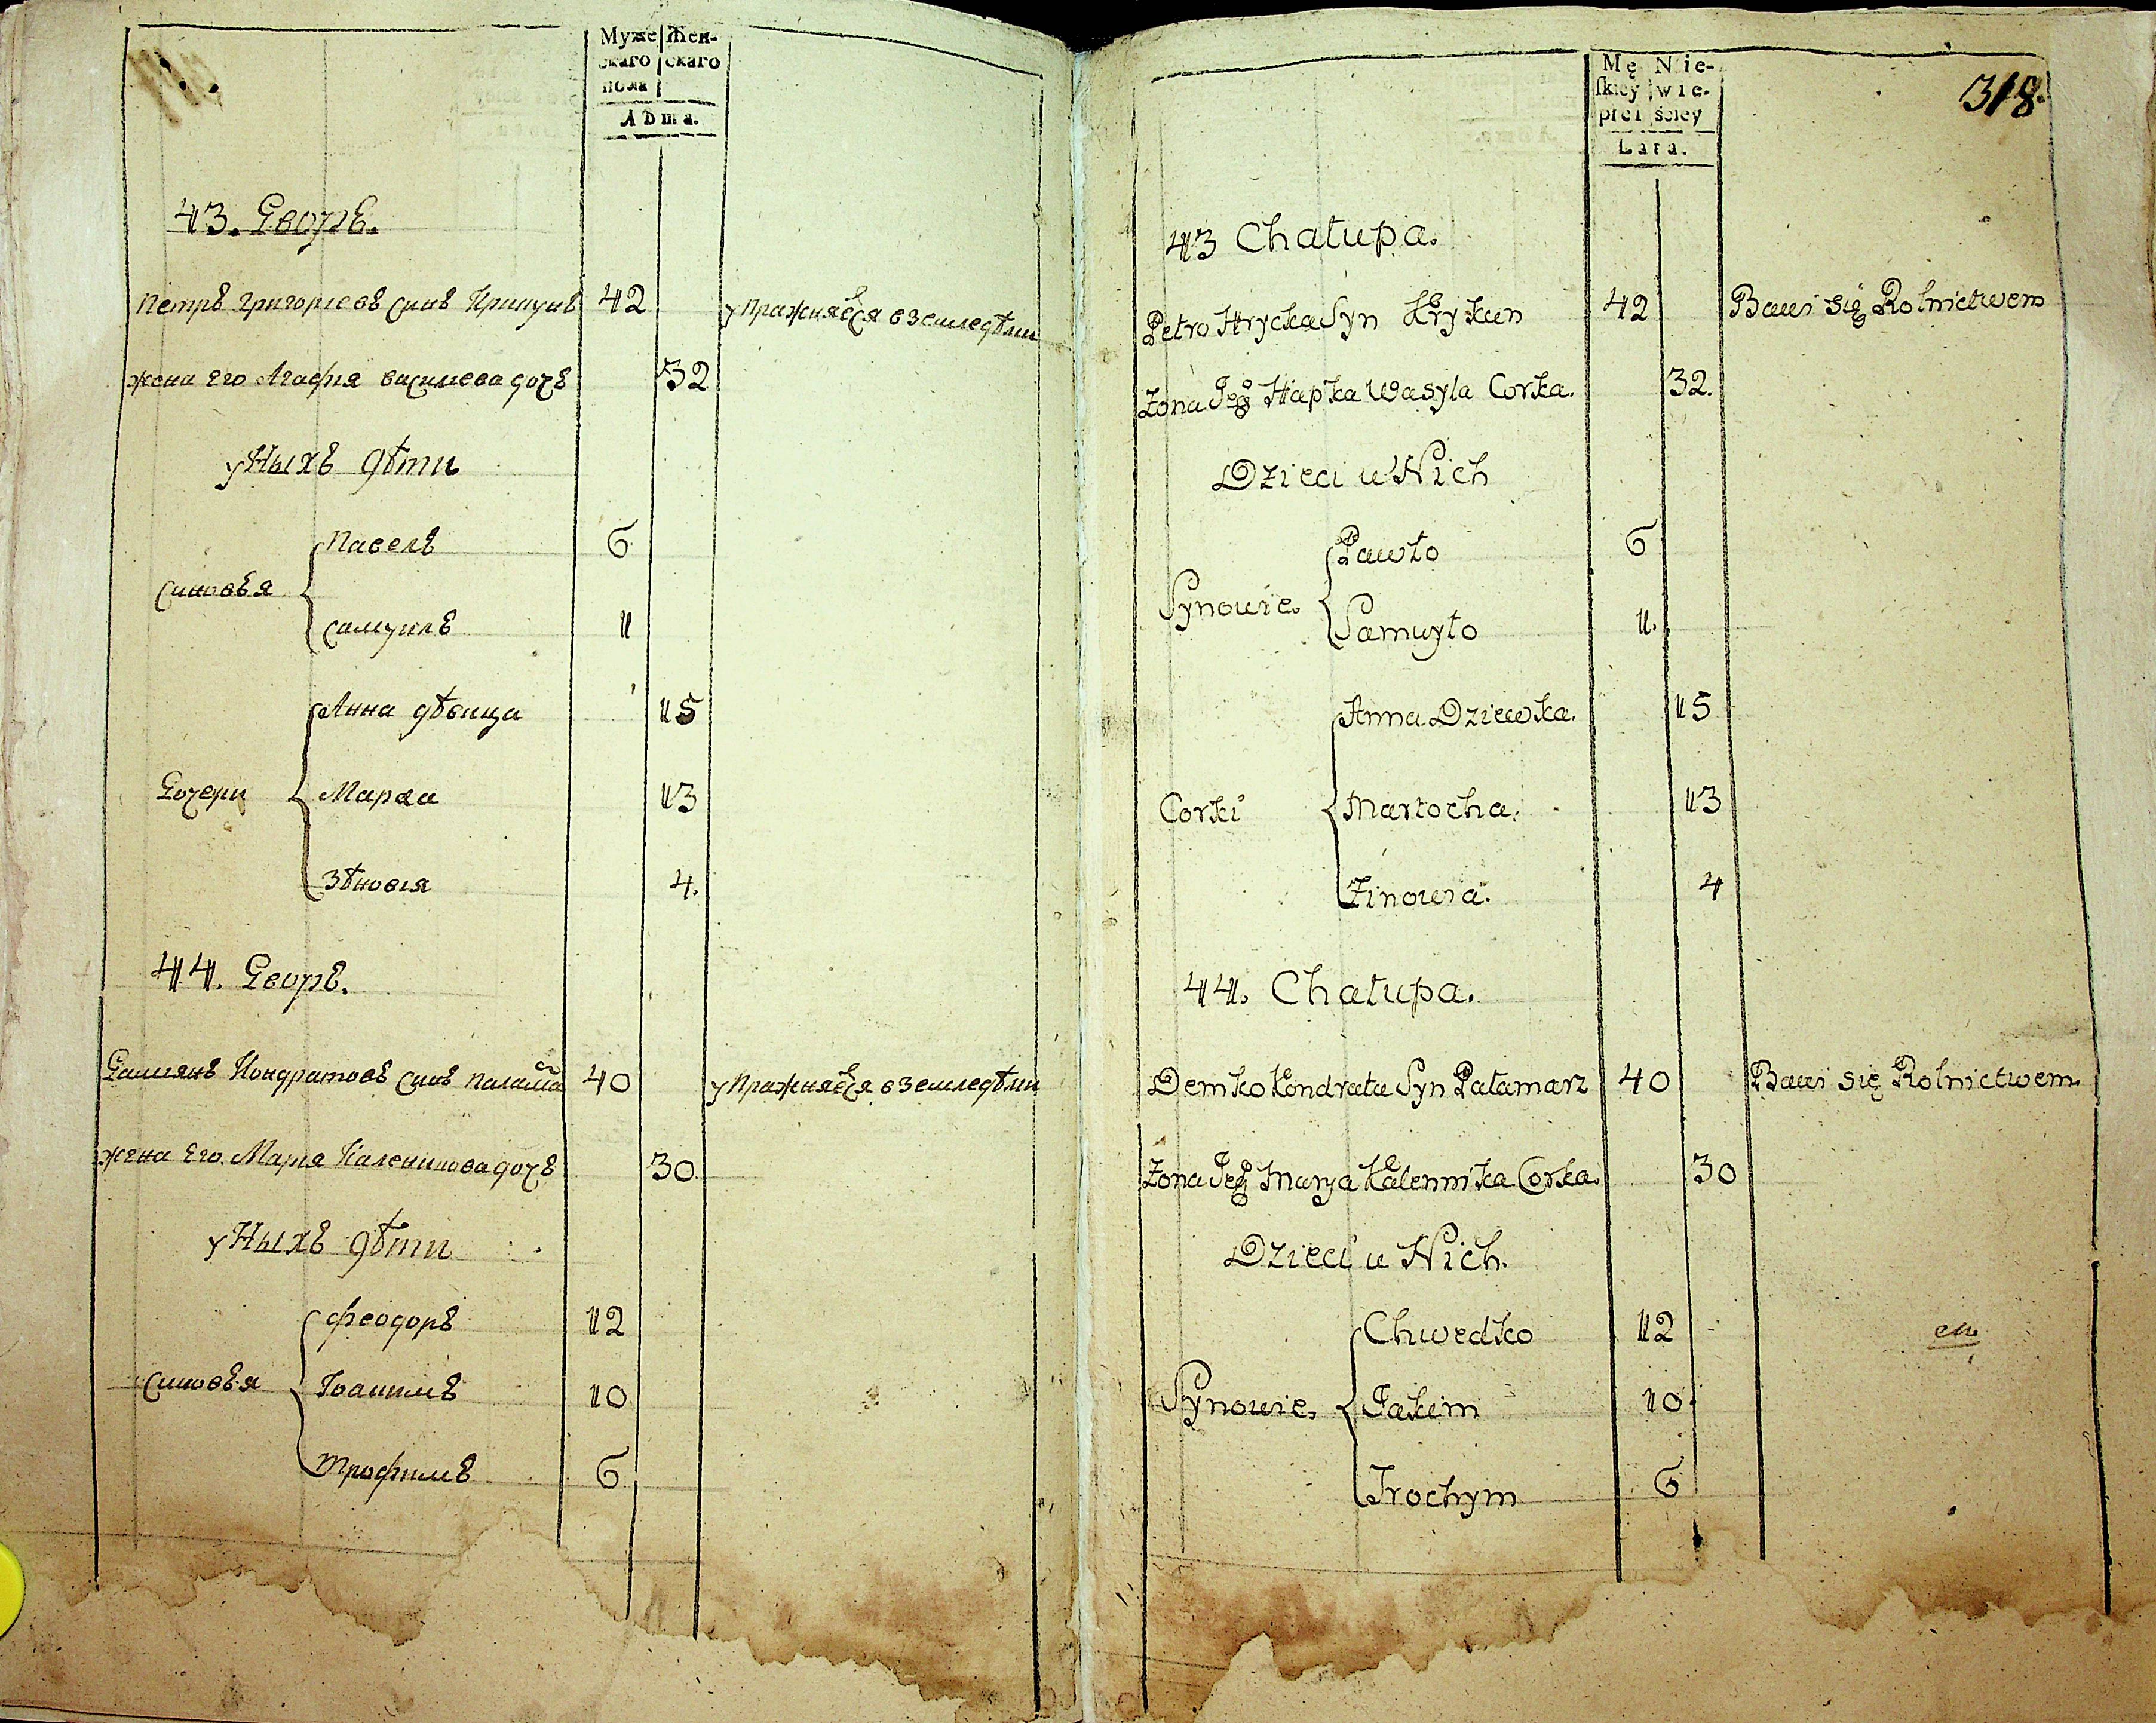 Муже Жен-
скаго скаго
пола
Лѣта.
43. Дворъ.
Петръ Григориевъ синъ Крикунъ 42 упражняется в земледѣлии
жена Его Агафия василиева дочь 32
у Ныхъ дѣти
синовья
Павелъ 6
самуилъ 1
Дочери
Анна дѣвица 15
Марѳа 13
Зѣновия 4.
44. Дворъ.
Дамиянъ Кондратовъ синъ паламар 40 упражняется в земледѣлии
жена Его Мария Каленикова дочь 30
у Ныхъ дѣти
синовья
Феодоръ 12
Іоакимъ 10
Трофимъ 6
318.
Mę Nie-
ſkiey wie-
płci ściey
Lata.
43 Chałupa.
Petro Hrycka Syn Krykun 42 Bawi się Rolnictwem
Żona Jego Hapka Wasyla Corka. 32.
Dzieci u Nich
Synowie.
Pawło 6
Samuyło 1.
Corki
Anna Dziewka. 15
Martocha. 13
Zinowia. 4
44. Chałupa.
Demko Kondrata Syn Pałamarz 40 Bawi się Rolnictwem.
Żona Jego Marya Kalennika Corka. 30
Dzieci u Nich.
Synowie.
Chwedko 12
Jakim 10.
Trochym 6